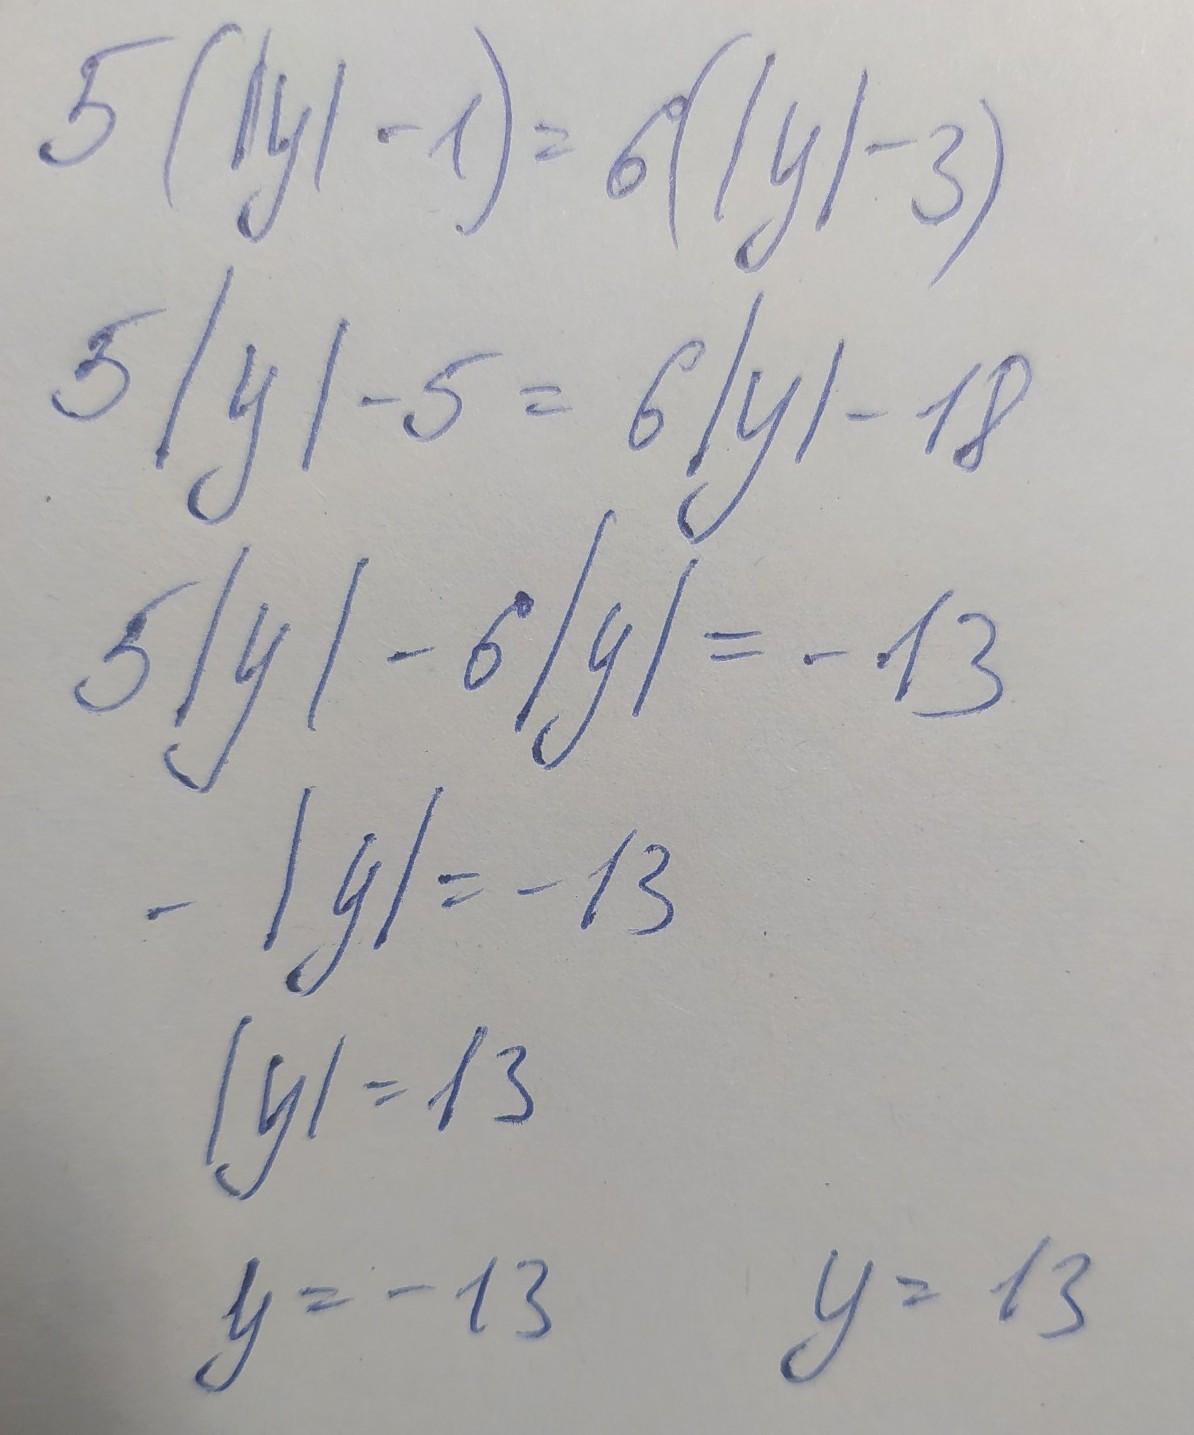 5(|y| - 1) = 6(|y| - 3)
5|y| - 5 = 6|y| - 18
5|y| - 6|y| = -13
- |y| = -13
|y| = 13
y = -13 y = 13